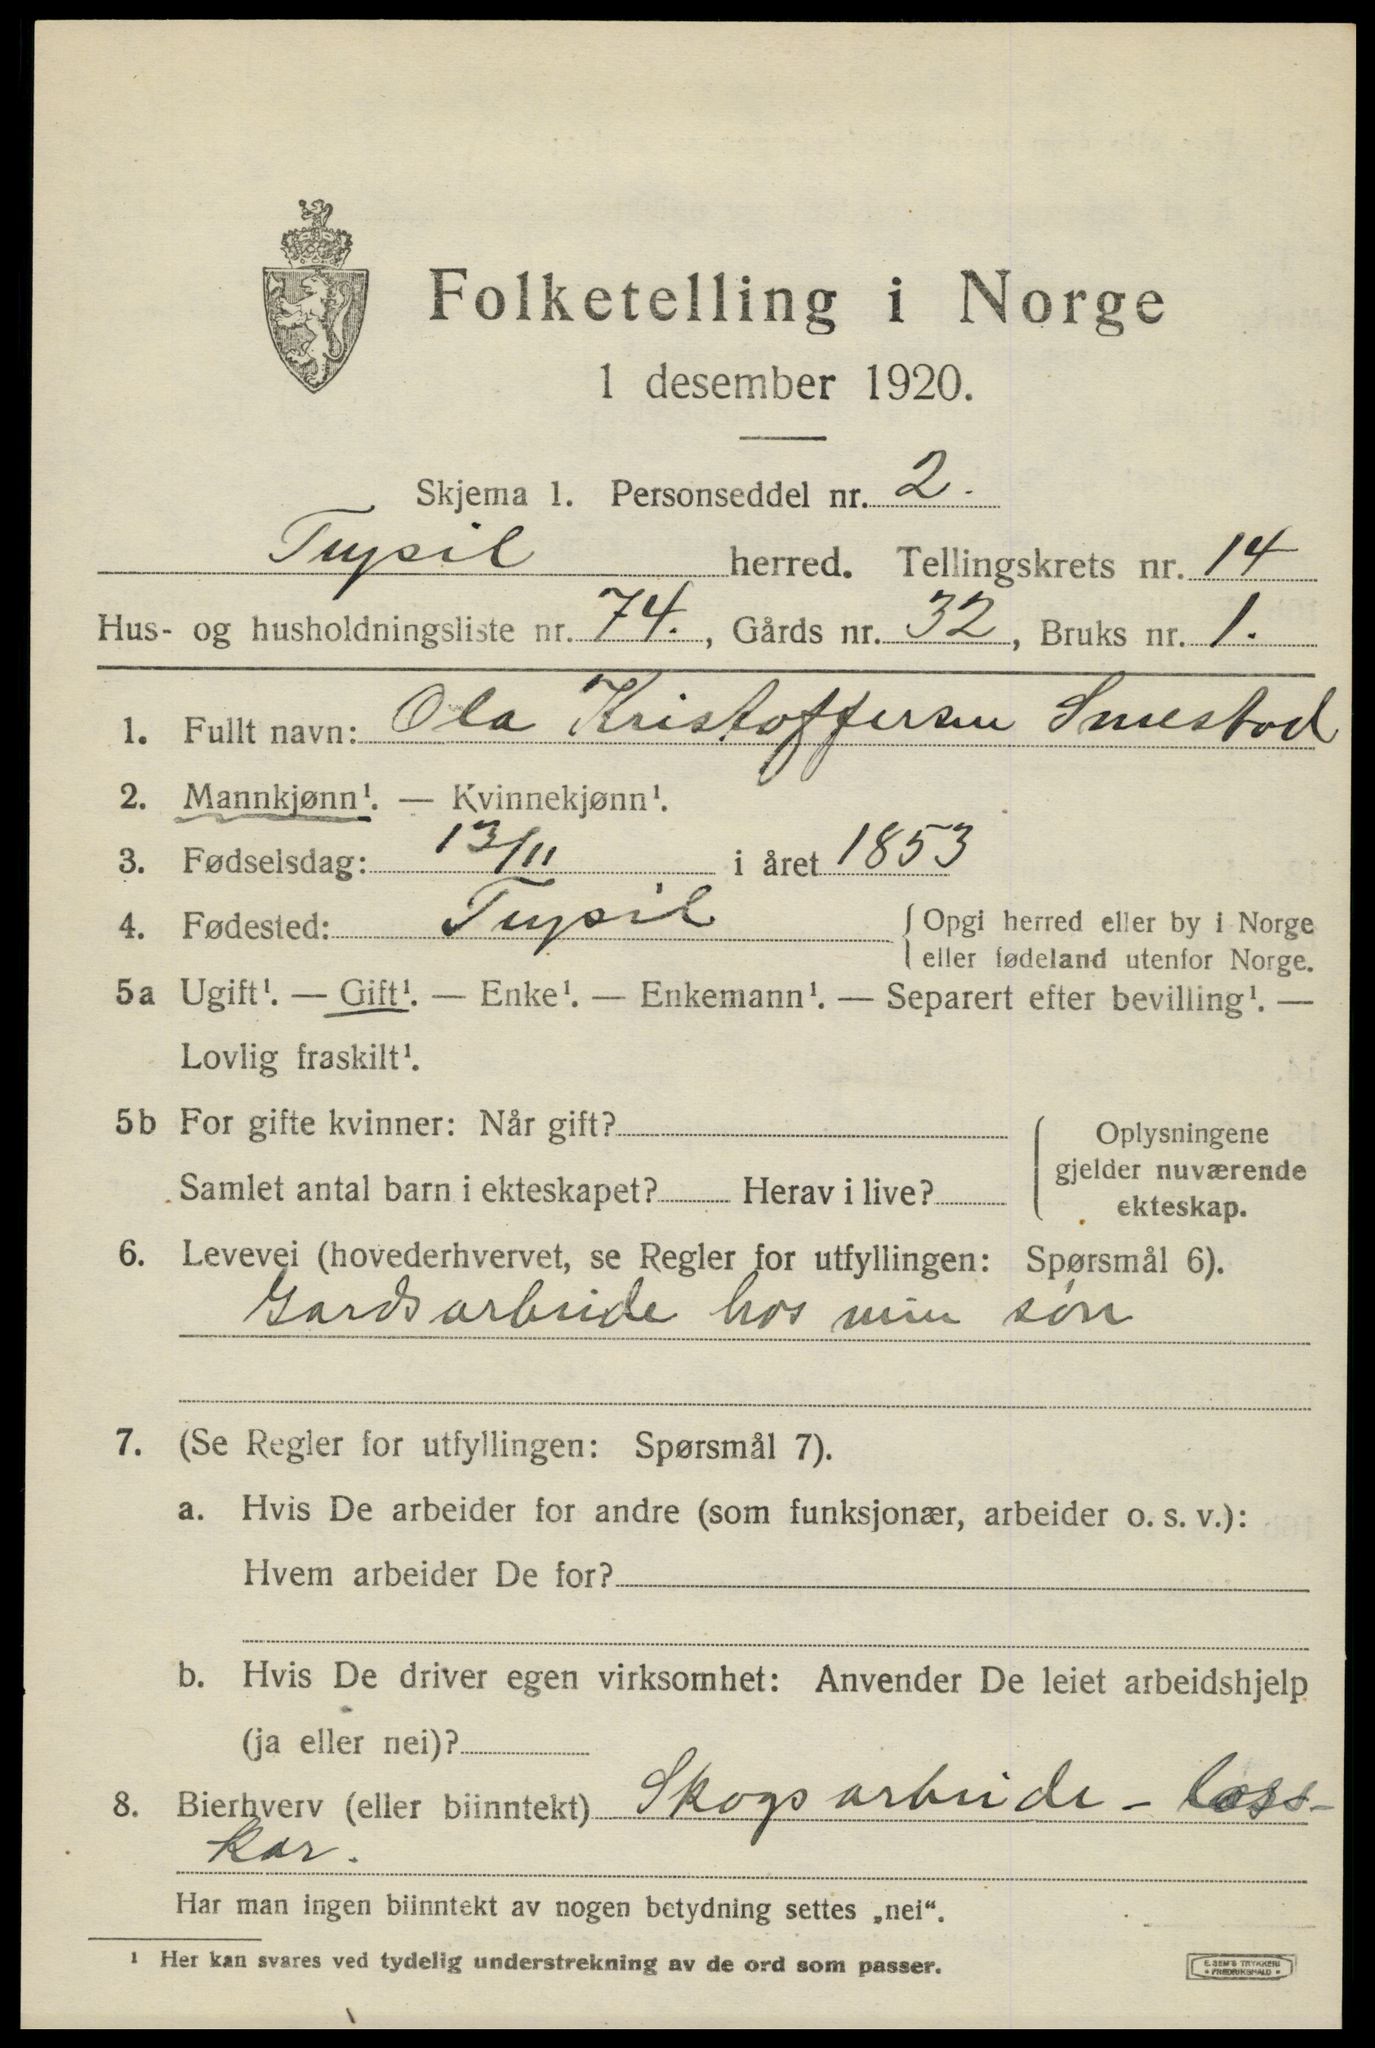 Folketelling i Norge
1 desember 1920.
Skjema 1. Personseddel nr. 2.
Trysil herred. Tellingskrets nr. 14
Hus- og husholdningsliste nr. 74., Gårds nr. 32, Bruks nr. 1.
1. Fullt navn: Ola Kristoffersen Smestad
2. Mannkjønn¹. — Kvinnekjønn¹.
3. Fødselsdag: 13/11 i året 1853
4. Fødested: Trysil { Opgi herred eller by i Norge
eller fødeland utenfor Norge.
5a Ugift¹. — Gift¹. — Enke¹. — Enkemann¹. — Separert efter bevilling¹. —
Lovlig fraskilt¹.
5b For gifte kvinner: Når gift?
Samlet antal barn i ekteskapet? Herav i live?
{ Oplysningene
gjelder nuværende
ekteskap.
6. Levevei (hovederhvervet, se Regler for utfyllingen: Spørsmål 6).
Gardsarbeide hos min søn
7. (Se Regler for utfyllingen: Spørsmål 7).
a. Hvis De arbeider for andre (som funksjonær, arbeider o. s. v.):
Hvem arbeider De for?
b. Hvis De driver egen virksomhet: Anvender De leiet arbeidshjelp
(ja eller nei)?
8. Bierhverv (eller biinntekt) Skogsarbeide - løss-
kar.
Har man ingen biinntekt av nogen betydning settes „nei“.
¹ Her kan svares ved tydelig understrekning av de ord som passer.
E. SEM'S TRYKKERI
FREDRIKSHALD